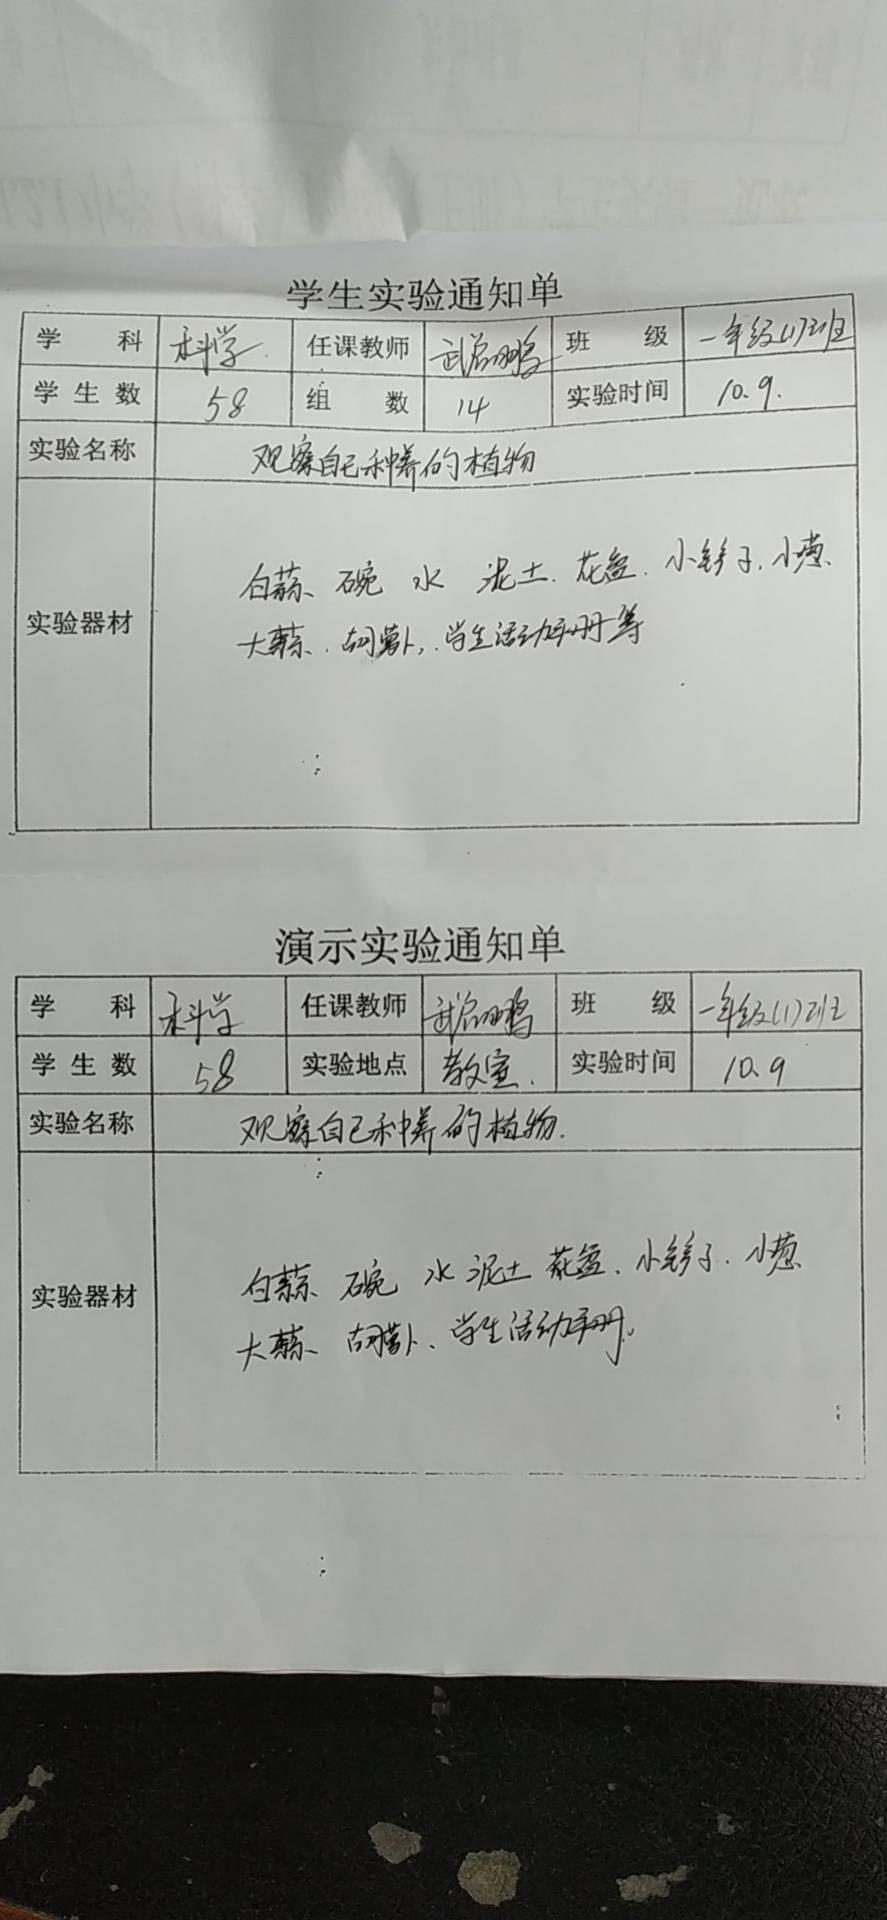 学生实验通知单
学 科 科学 任课教师 武启鹏 班 级 一年级(1)班
学生数 58 组 数 14 实验时间 10.9.
实验名称 观察自己种养的植物
实验器材 白蒜、碗 水 泥土、花盆、小铲子、小葱、
大蒜、胡萝卜、学生活动手册等
演示实验通知单
学 科 科学 任课教师 武启鹏 班 级 一年级(1)班
学生数 58 实验地点 教室. 实验时间 10.9
实验名称 观察自己种养的植物.
实验器材 白蒜、碗 水 泥土 花盆、小铲子、小葱
大蒜、胡萝卜、学生活动手册。